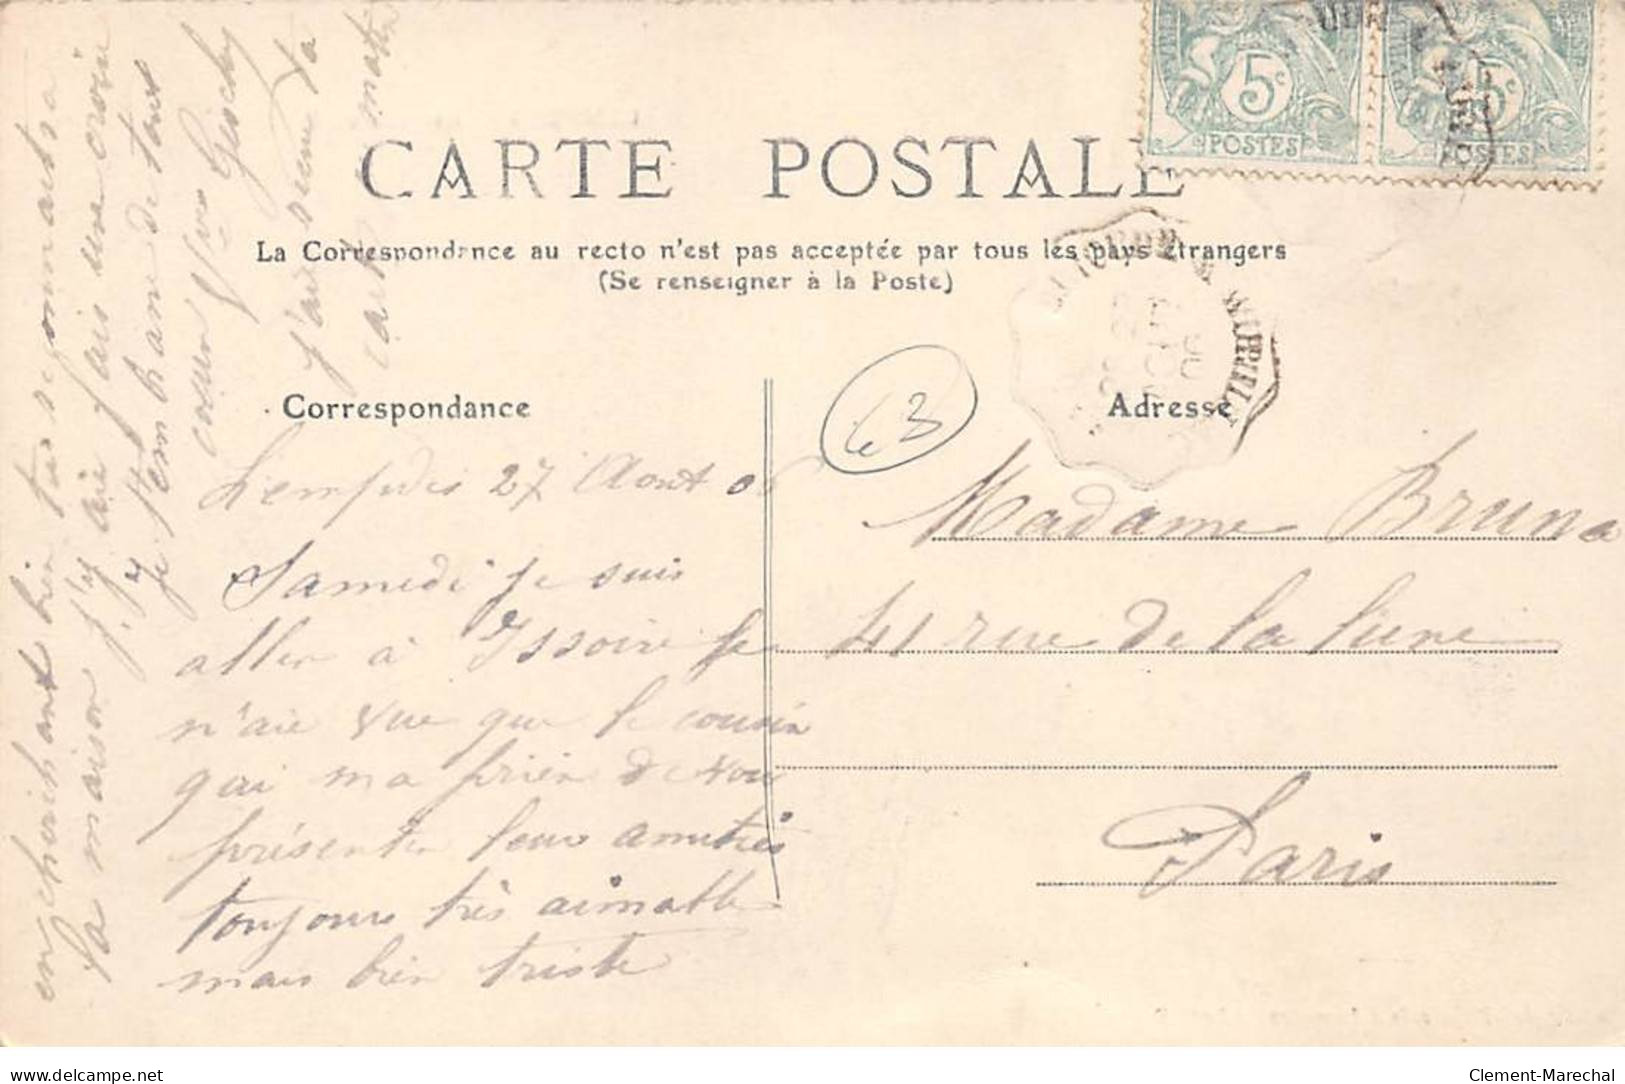 CARTE POSTALE
La Correspondance au recto n'est pas acceptée par tous les pays étrangers
(Se renseigner à la Poste)
5c
POSTES
5c
POSTES
Correspondance
Adresse
63
Lempdes 27 Aout 06
Samedi je suis
aller à Issoire je
n'aie vue que le cousin
qui ma prier de vous
présenter leur amitiés
toujours très aimable
mais bien triste
en cherchant bien tu reconnaitra
la maison j'y aie fais une croix
Je t'embrasse de tout
cœur
J'ai recue ta
carte matin
Madame Bruna
41 rue de la lune
Paris
www.delcampe.net
Clement-Marechal